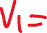 V₁ =